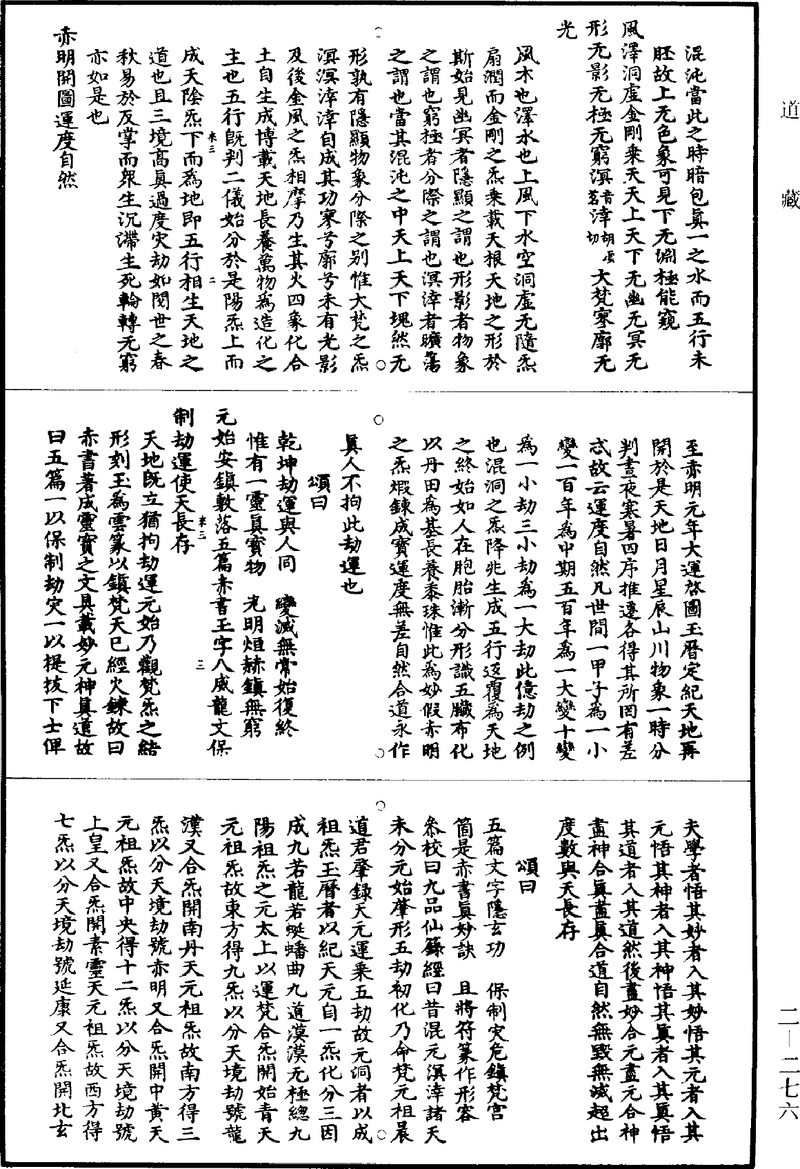 道藏
混沌當此之時暗包真一之水而五行未
胚故上无色象可見下无淵極能窺
風澤洞虛金剛乘天天上天下无幽无冥无
形无影无極无窮溟音茗涬胡頂切大梵寥廓无
光
風木也澤水也上風下水空洞虛无隨炁
扇潤而金剛之炁乘載天根天地之形於
斯始見幽冥者隱顯之謂也形影者物象
之謂也窮極者分際之謂也溟涬者曠蕩
之謂也當其混沌之中天上天下塊然无
形孰有隱顯物象分際之别惟大梵之炁
溟溟涬涬自成其功寥兮廓兮未有光影
及後金風之炁相摩乃生其火四象化合
土自生成博載天地長養萬物為造化之
主也五行旣判二儀始分於是陽炁上而
成天陰炁下而為地即五行相生天地之
道也且三境高真過度灾劫如閱世之春
秋易於反掌而衆生沉滯生死輪轉无窮
亦如是也
赤明開圖運度自然
至赤明元年大運啓圖玉曆定紀天地再
開於是天地日月星辰山川物象一時分
判晝夜寒暑四序推遷各得其所罔有差
忒故云運度自然凡世間一甲子為一小
變一百年為中期五百年為一大變十變
為一小劫三小劫為一大劫此億劫之例
也混洞之炁降兆生成五行返覆為天地
之終始如人在胞胎漸分形識五臟布化
以丹田為基長養黍珠惟此為妙假赤明
之炁煆鍊成寶運度無差自然合道永作
真人不拘此劫運也
頌曰
乾坤劫運與人同　變滅無常始復終
惟有一靈真寶物　光明烜赫鎮無窮
元始安鎮敷落五篇赤書玉字八威龍文保
制劫運使天長存
天地旣立猶拘劫運元始乃觀梵炁之結
形刻玉為雲篆以鎮梵天已經火鍊故曰
赤書著成靈寶之文具載妙元神真道故
曰五篇一以保制劫灾一以提拔下士俾
夫學者悟其妙者入其妙悟其元者入其
元悟其神者入其神悟其真者入其真悟
其道者入其道然後盡妙合元盡元合神
盡神合真盡真合道自然無毀無滅超出
度數與天長存
頌曰
五篇文字隱玄功　保制灾危鎮梵宫
箇是赤書真妙訣　且將符篆作形容
叅校曰九品仙籙經曰昔混元溟涬諸天
未分元始肇形五劫初化乃命梵元祖晨
道君肇錄天元運乘五劫故元洞者以成
祖炁玉曆者以紀天元自一炁化分三因
成九若龍若蜒蟠曲九道漠漠无極總九
陽祖炁之元太上以運梵合炁開始青天
元祖炁故東方得九炁以分天境劫號龍
漢又合炁開南丹天元祖炁故南方得三
炁以分天境劫號赤明又合炁開中黄天
元祖炁故中央得十二炁以分天境劫號
上皇又合炁開素靈天元祖炁故西方得
七炁以分天境劫號延康又合炁開北玄
二—二七六